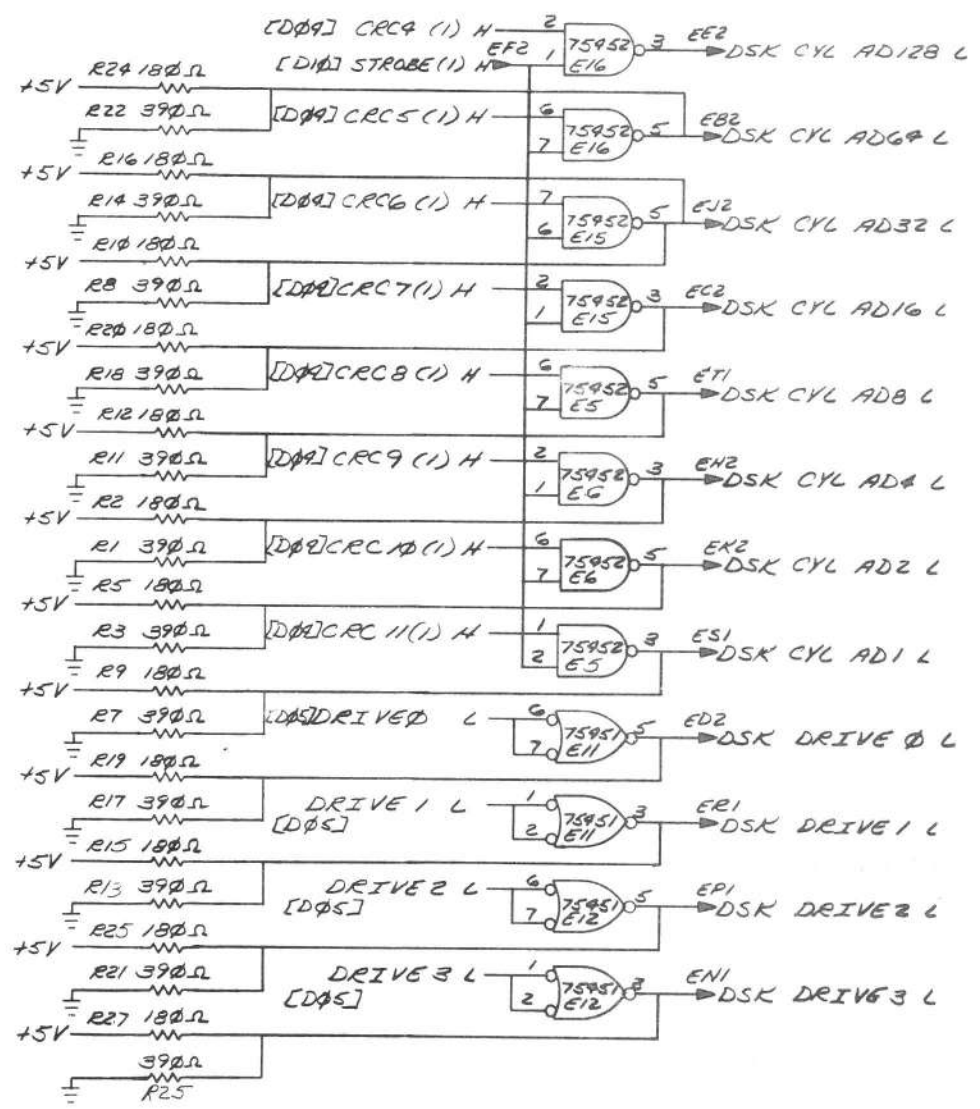 [DØ4] CRC4 (1) H 2 75452 E16 3 EE2 DSK CYL AD128 L
[D1Ø] STROBE (1) H EF2 1
+5V R24 18ØΩ
R22 39ØΩ [DØ4] CRC5 (1) H 6 7 75452 E16 5 EB2 DSK CYL AD64 L
+5V R16 18ØΩ
R14 39ØΩ [DØ4] CRC6 (1) H 7 6 75452 E15 5 EJ2 DSK CYL AD32 L
+5V R1Ø 18ØΩ
R8 39ØΩ [DØ4] CRC7 (1) H 2 1 75452 E15 3 EC2 DSK CYL AD16 L
+5V R2Ø 18ØΩ
R18 39ØΩ [DØ4] CRC8 (1) H 6 7 75452 E5 5 ET1 DSK CYL AD8 L
+5V R12 18ØΩ
R11 39ØΩ [DØ4] CRC9 (1) H 2 1 75452 E6 3 EH2 DSK CYL AD4 L
+5V R2 18ØΩ
R1 39ØΩ [DØ4] CRC 1Ø (1) H 6 7 75452 E6 5 EK2 DSK CYL AD2 L
+5V R5 18ØΩ
R3 39ØΩ [DØ4] CRC 11 (1) H 1 2 75452 E5 3 ES1 DSK CYL AD1 L
+5V R9 18ØΩ
R7 39ØΩ [DØ5] DRIVEØ L 6 7 75451 E11 5 ED2 DSK DRIVE Ø L
+5V R19 18ØΩ
R17 39ØΩ DRIVE 1 L 1 2 75451 E11 3 ER1 DSK DRIVE 1 L
[DØ5]
+5V R15 18ØΩ
R13 39ØΩ DRIVE 2 L 6 7 75451 E12 5 EP1 DSK DRIVE 2 L
[DØ5]
+5V R25 18ØΩ
R21 39ØΩ DRIVE 3 L 1 2 75451 E12 3 EN1 DSK DRIVE 3 L
[DØ5]
+5V R27 18ØΩ
39ØΩ
R25